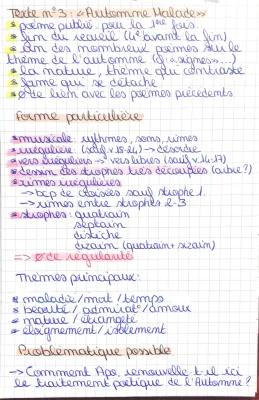 Texte n°3 : « Automne Malade »
* poème publié pour la 1ère fois
* fin du recueil (4e avant la fin)
* un des nombreux poèmes sur le
thème de l'automne (cf « signes »...)
* la nature, thème qui contraste
* fame qui se détache
* ∅ de lien avec les poèmes précédents
Forme particulière
* musicale : rythmes, sons, rimes
* irrégulière (sauf v.18-21) → désordre
* vers irréguliers → vers libres (sauf v.14-17)
* dessin des strophes très découpées (arbre?)
* rimes irrégulières
→ bcp de croisées sauf strophe 1.
→ rimes entre strophes 2-3
* strophes : quatrain
septain
distiche
dizain (quatrain + sizain)
=> ∅ de régularité
Thèmes principaux :
* maladie / mort / temps
* beauté / admirat° / amour
* nature / étrangeté
* éloignement / isolement
Problématique possible
→ Comment Apo. renouvelle-t-il ici
le traitement poétique de l'Automne ?